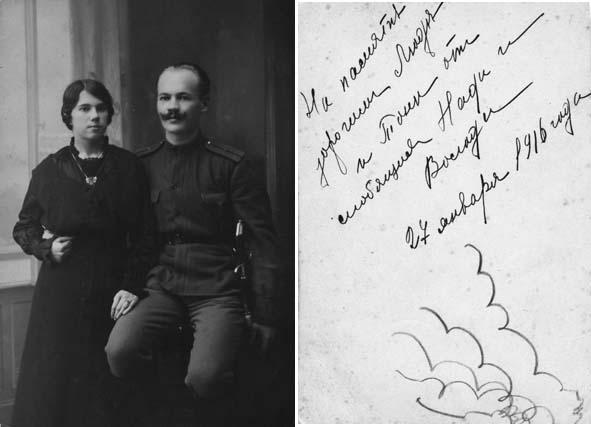 На память
дорогим Люде
и Тони от
любящих Нади и
Володи
27 января 1916 года